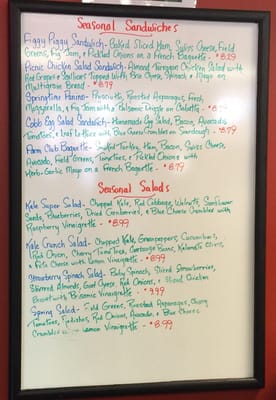 Seasonal Sandwiches
Figgy Piggy Sandwich- Baked Sliced Ham, Swiss Cheese, Field
Greens, Fig Jam, & Pickled Onions on a French Baguette - $8.29
Picnic Chicken Salad Sandwich- Almond Tarragon Chicken Salad with
Red Grapes & Scallions Topped With Brie Cheese, Spinach & Mayo on
Multigrain Bread - $8.79
Springtime Panini- Prosciutto, Roasted Asparagus, Fresh
Mozzarella, & Fig Jam with a Balsamic Drizzle on Ciabatta - $8.99
Cobb Egg Salad Sandwich- Homemade Egg Salad, Bacon, Avocado,
Tomatoes, & Leaf Lettuce with Blue Cheese Crumbles on Sourdough - $8.79
Farm Club Baguette- Smoked Turkey, Ham, Bacon, Swiss Cheese,
Avocado, Field Greens, Tomatoes, & Pickled Onions with
Herb-Garlic Mayo on a French Baguette - $8.79
Seasonal Salads
Kale Super Salad- Chopped Kale, Red Cabbage, Walnuts, Sunflower
Seeds, Blueberries, Dried Cranberries, & Blue Cheese Crumbles with
Raspberry Vinaigrette - $8.99
Kale Crunch Salad- Chopped Kale, Green Peppers, Cucumbers,
Red Onion, Cherry Tomatoes, Garbanzo Beans, Kalamata Olives,
& Feta Cheese with Lemon Vinaigrette - $8.99
Strawberry Spinach Salad- Baby Spinach, Sliced Strawberries,
Slivered Almonds, Goat Cheese, Red Onions, & Sliced Chicken
Breast with Balsamic Vinaigrette - $9.99
Spring Salad- Field Greens, Roasted Asparagus, Cherry
Tomatoes, Radishes, Red Onions, Avocado, & Blue Cheese
Crumbles Lemon Vinaigrette - $8.99